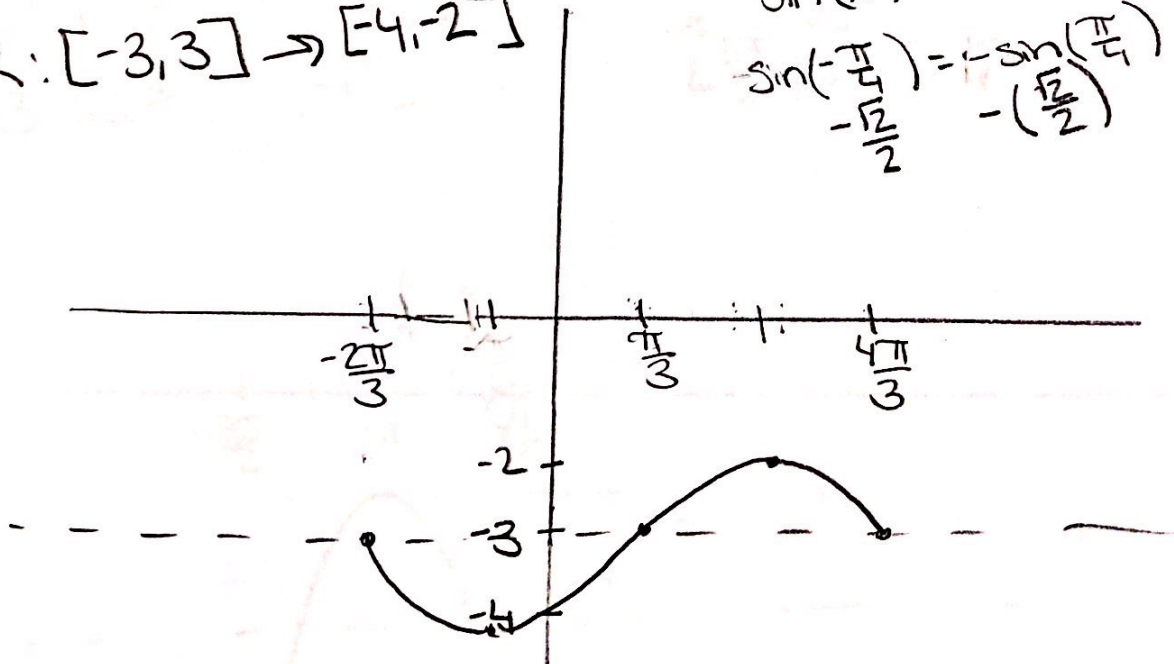 : [-3,3] → [-4,-2]
sin(-π/4) = -sin(π/4)
-√2/2 -(√2/2)
-2π/3 π/3 4π/3
-2
-3
-4